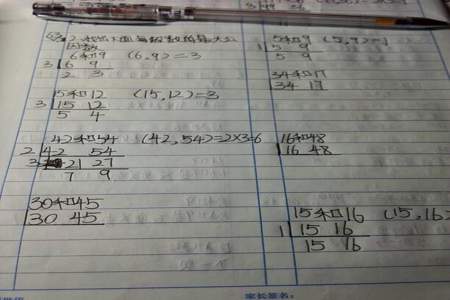 2.找出下面每组数的最大公
因数
6和9 (6,9)=3
3 6 9
2 3
15和12 (15,12)=3
3 15 12
5 4
42和54 (42,54)=2×3=6
2 42 54
3 21 27
7 9
30和45
30 45
5和9 (5,9)=1
1 5 9
5 9
34和17
34 17
16和48
16 48
15和16 (15,16)
1 15 16
15 16
家长签名: